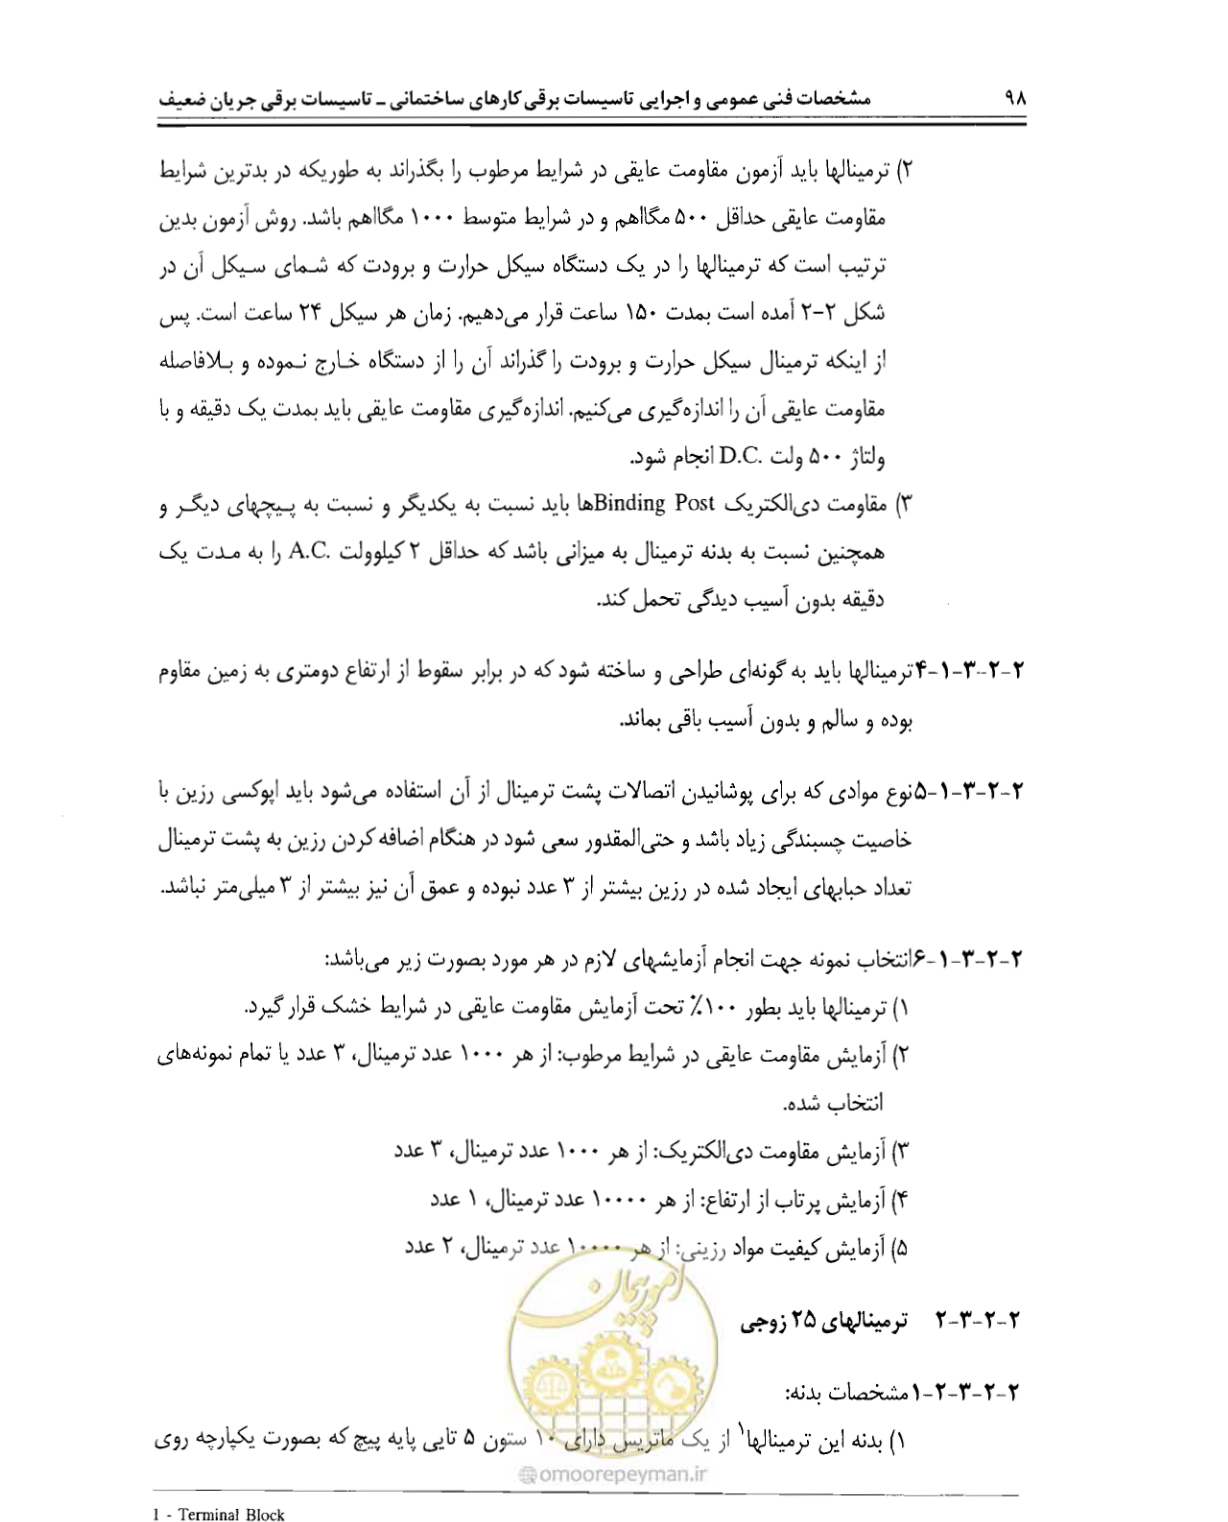 ۹۸ مشخصات فنی عمومی و اجرایی تاسیسات برقی کارهای ساختمانی – تاسیسات برقی جریان ضعیف
۲) ترمینالها باید آزمون مقاومت عایقی در شرایط مرطوب را بگذراند به طوریکه در بدترین شرایط
مقاومت عایقی حداقل ۵۰۰ مگااهم و در شرایط متوسط ۱۰۰۰ مگااهم باشد. روش آزمون بدین
ترتیب است که ترمینالها را در یک دستگاه سیکل حرارت و برودت که شمای سیکل آن در
شکل ۲-۲ آمده است بمدت ۱۵۰ ساعت قرار می‌دهیم. زمان هر سیکل ۲۴ ساعت است. پس
از اینکه ترمینال سیکل حرارت و برودت را گذراند آن را از دستگاه خارج نموده و بلافاصله
مقاومت عایقی آن را اندازه‌گیری می‌کنیم. اندازه‌گیری مقاومت عایقی باید بمدت یک دقیقه و با
ولتاژ ۵۰۰ ولت D.C. انجام شود.
۳) مقاومت دی‌الکتریک Binding Postها باید نسبت به یکدیگر و نسبت به پیچهای دیگر و
همچنین نسبت به بدنه ترمینال به میزانی باشد که حداقل ۲ کیلوولت A.C. را به مدت یک
دقیقه بدون آسیب دیدگی تحمل کند.
۲-۲-۳-۱-۴ ترمینالها باید به گونه‌ای طراحی و ساخته شود که در برابر سقوط از ارتفاع دومتری به زمین مقاوم
بوده و سالم و بدون آسیب باقی بماند.
۲-۲-۳-۱-۵ نوع موادی که برای پوشانیدن اتصالات پشت ترمینال از آن استفاده می‌شود باید اپوکسی رزین با
خاصیت چسبندگی زیاد باشد و حتی‌المقدور سعی شود در هنگام اضافه کردن رزین به پشت ترمینال
تعداد حبابهای ایجاد شده در رزین بیشتر از ۳ عدد نبوده و عمق آن نیز بیشتر از ۳ میلی‌متر نباشد.
۲-۲-۳-۱-۶ انتخاب نمونه جهت انجام آزمایشهای لازم در هر مورد بصورت زیر می‌باشد:
۱) ترمینالها باید بطور ۱۰۰٪ تحت آزمایش مقاومت عایقی در شرایط خشک قرار گیرد.
۲) آزمایش مقاومت عایقی در شرایط مرطوب: از هر ۱۰۰۰ عدد ترمینال، ۳ عدد یا تمام نمونه‌های
انتخاب شده.
۳) آزمایش مقاومت دی‌الکتریک: از هر ۱۰۰۰ عدد ترمینال، ۳ عدد
۴) آزمایش پرتاب از ارتفاع: از هر ۱۰۰۰۰ عدد ترمینال، ۱ عدد
۵) آزمایش کیفیت مواد رزینی: از هر ۱۰۰۰۰ عدد ترمینال، ۲ عدد
امور پیمان
۲-۲-۳-۲ ترمینالهای ۲۵ زوجی
۲-۲-۳-۲-۱ مشخصات بدنه:
۱) بدنه این ترمینالها۱ از یک ماتریس دارای ۱۰ ستون ۵ تایی پایه پیچ که بصورت یکپارچه روی
@omoorepeyman.ir
1 - Terminal Block